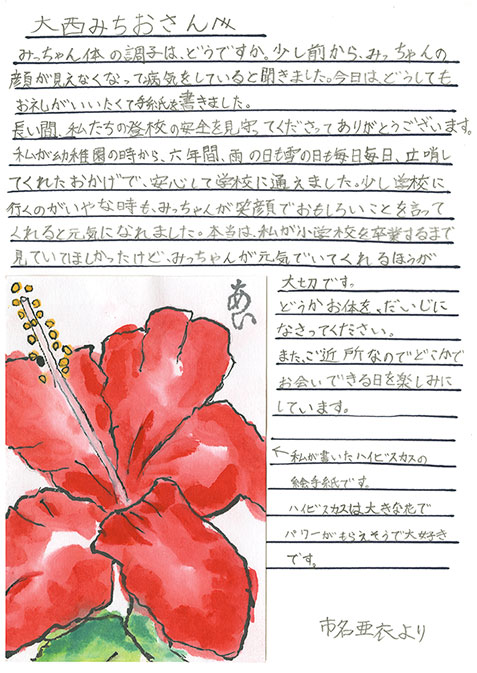 大西みちおさんへ
みっちゃん体の調子は、どうですか。少し前から、みっちゃんの
顔が見えなくなって病気をしていると聞きました。今日は、どうしても
お礼がいいたくて手紙を書きました。
長い間、私たちの登校の安全を見守ってくださってありがとうございます。
私が幼稚園の時から、六年間、雨の日も雪の日も毎日毎日、立哨し
てくれたおかげで、安心して学校に通えました。少し学校に
行くのがいやな時も、みっちゃんが笑顔でおもしろいことを言って
くれると元気になれました。本当は、私が小学校を卒業するまで
見ていてほしかったけど、みっちゃんが元気でいてくれるほうが
大切です。
どうかお体を、だいじに
なさってください。
また、ご近所なのでどこかで
お会いできる日を楽しみに
しています。
あい
↑私が書いたハイビスカスの
絵手紙です。
ハイビスカスは大きな花で
パワーがもらえそうで大好き
です。
市名亜衣より